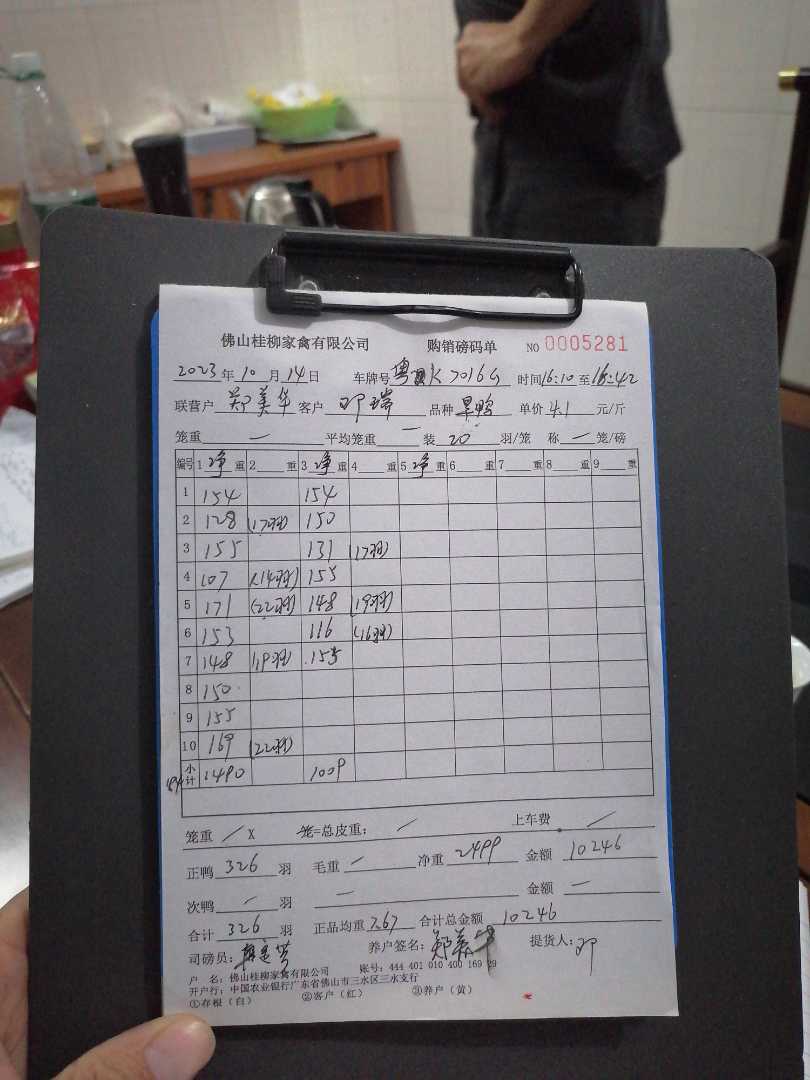 佛山桂柳家禽有限公司 购销磅码单 NO 0005281
2023年10月14日 车牌号 粤K7016G 时间16:10至16:42
联营户 郑美华 客户 邓瑞 品种 旱鸭 单价 4.1 元/斤
笼重 — 平均笼重 — 装 20 羽/笼 称 — 笼/磅
编号 1 净重 2 重 3 净重 4 重 5 净重 6 重 7 重 8 重 9 重
1 154 154
2 128 (17羽) 150
3 155 131 (17羽)
4 107 (14羽) 155
5 171 (22羽) 148 (19羽)
6 153 116 (16羽)
7 148 (19羽) 155
8 150
9 155
10 169 (22羽)
小计 1490 1009
笼重 / X 笼=总皮重: / 上车费 /
正鸭 326 羽 毛重 — 净重 2499 金额 10246
次鸭 — 羽 — 金额 —
合计 326 羽 正品均重 7.67 合计总金额 10246
司磅员: 养户签名: 郑美华 提货人: 邓
户 名: 佛山桂柳家禽有限公司 账号: 444 401 010 400 169 29
开户行: 中国农业银行广东省佛山市三水区三水支行
①存根(白) ②客户(红) ③养户(黄)